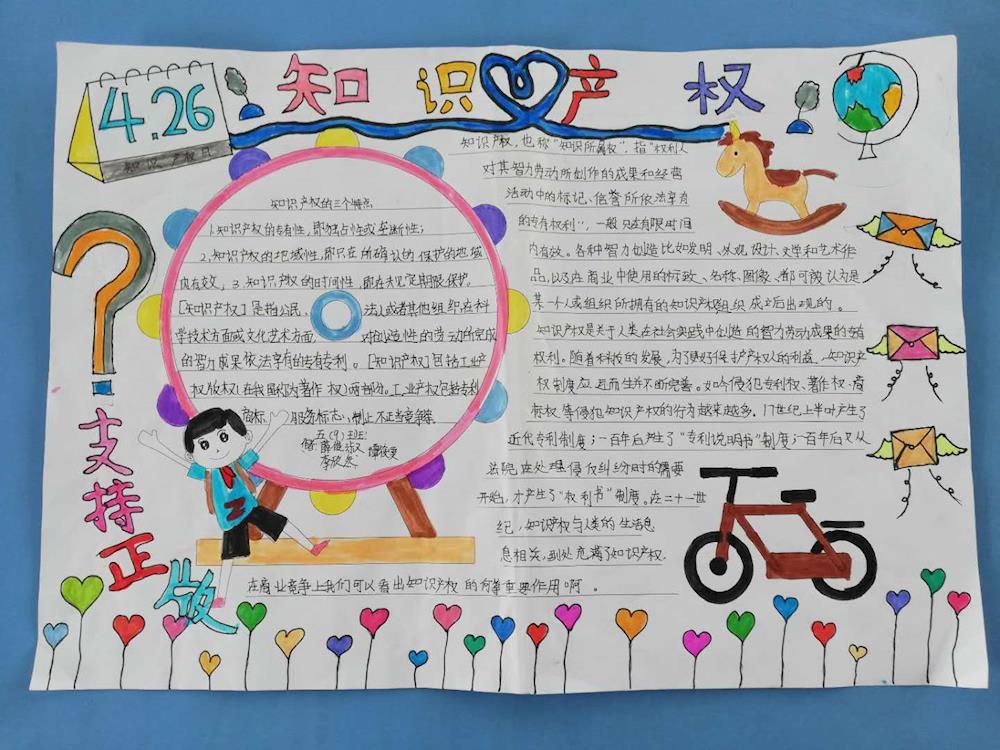 4.26
知识产权日
知识产权
支持正版
知识产权的三个特点
1.知识产权的专有性,即独占性或垄断性;
2.知识产权的地域性,即只在所确认的保护的地域
内有效。3.知识产权的时间性,即在规定期限保护。
[知识产权]是指公民、法人或者其他组织在科
学技术方面或文化艺术方面,对创造性的劳动所完成
的智力成果依法享有的专有专利。[知识产权]包括工业产
权版权(在我国称为著作权)两部分。工业产权包括专利
商标、服务标志、制止不正当竞争等。
五(9)班
知识产权,也称“知识所属权”,指“权利人
对其智力劳动所创作的成果和经营
活动中的标记、信誉所依法享有
的专有权利”,一般只在有限时间
内有效。各种智力创造比如发明、外观设计、文学和艺术作
品,以及在商业中使用的标致、名称、图象、都可被认为是
某一个人或组织所拥有的知识产权组织成立后出现的。
知识产权是关于人类在社会实践中创造的智力劳动成果的专有
权利。随着科技的发展,为了更好保护产权人的利益,知识产
权制度应运而生并不断完善。如今侵犯专利权、著作权、商
标权等侵犯知识产权的行为越来越多。17世纪上半叶产生了
近代专利制度;一百年后产生了“专利说明书”制度;一百年后又从
法院在处理侵权纠纷时的需要
开始,才产生了“权利书”制度。在二十一世
纪,知识产权与人类的生活息
息相关,到处充满了知识产权.
在商业竞争上我们可以看出知识产权的有着重要作用啊。